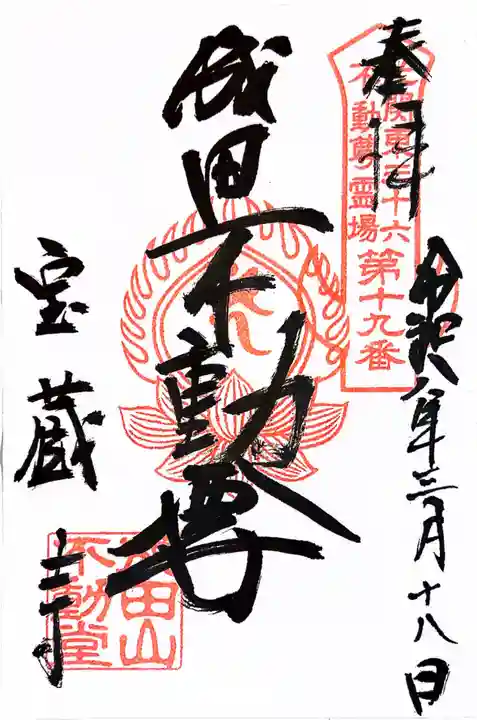 奉拝
北関東三十六
不動尊霊場
第十九番
令和八年三月十八日
成田不動尊
宝蔵寺
成田山
不動堂